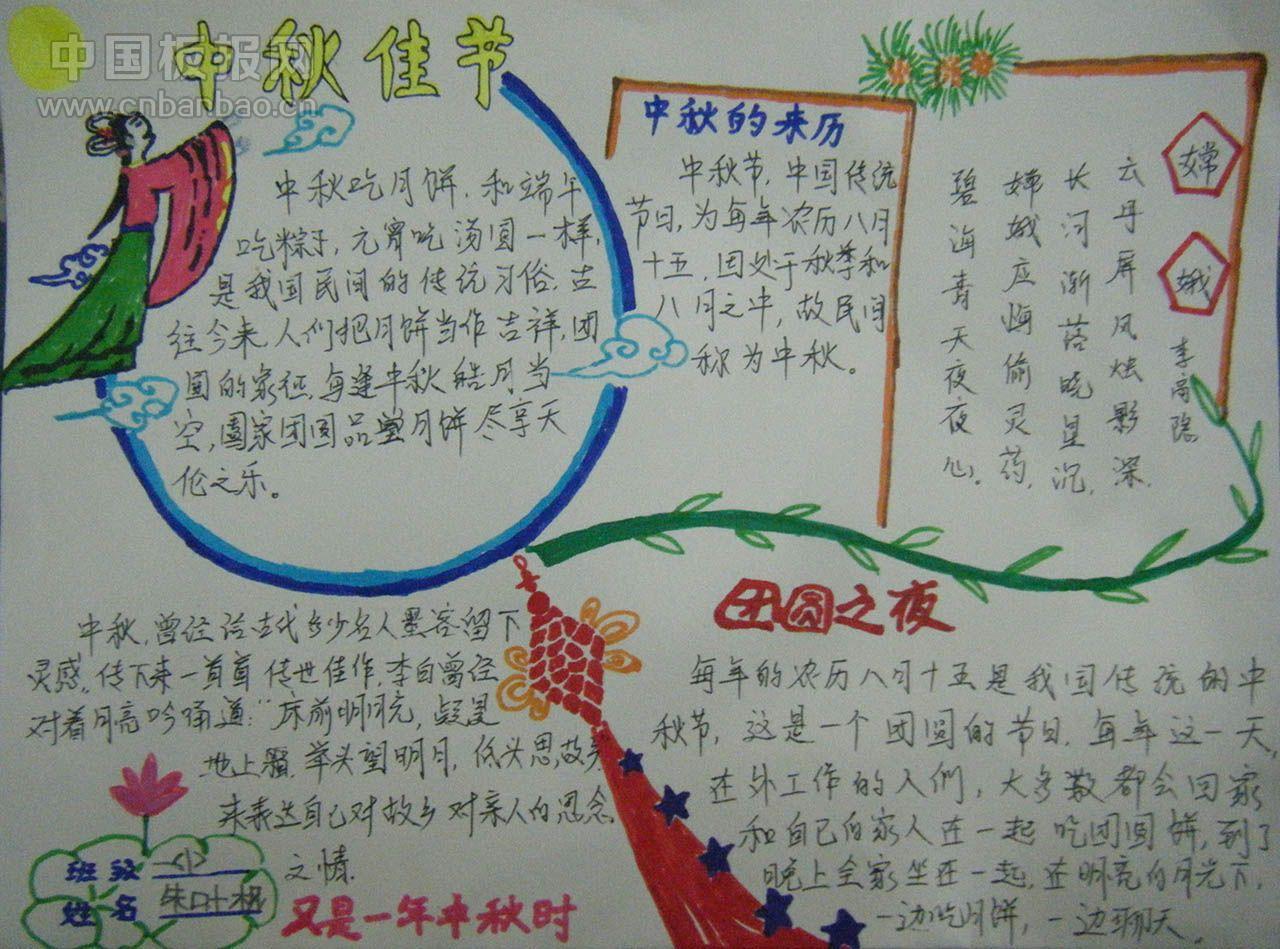 中国板报网
www.cnbanbao.cn
中秋佳节
中秋吃月饼，和端午
吃粽子，元宵吃汤圆一样，
是我国民间的传统习俗。古
往今来，人们把月饼当作吉祥，团
圆的象征，每逢中秋皓月当
空，阖家团圆品尝月饼尽享天
伦之乐。
中秋的来历
中秋节，中国传统
节日，为每年农历八月
十五，因处于秋季和
八月之中，故民间
称为中秋。
嫦娥
李商隐
云母屏风烛影深，
长河渐落晓星沉，
嫦娥应悔偷灵药，
碧海青天夜夜心。
中秋，曾经给古代多少名人墨客留下
灵感，传下来一首首传世佳作，李白曾经
对着月亮吟诵道：“床前明月光，疑是
地上霜，举头望明月，低头思故乡
来表达自己对故乡对亲人的思念
之情.
团圆之夜
每年的农历八月十五是我国传统的中
秋节，这是一个团圆的节日，每年这一天，
在外工作的人们，大多数都会回家
和自己的家人在一起吃团圆饼，到了
晚上全家坐在一起，在明亮的月光下，
一边吃月饼，一边聊天
班级
姓名 朱
又是一年中秋时